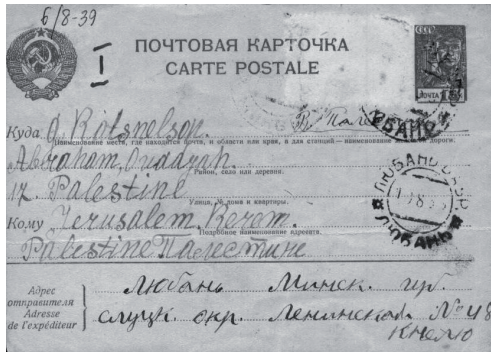 6/8-39
СССР
ПОЧТОВАЯ КАРТОЧКА
CARTE POSTALE
ПОЧТА
I
Куда A. Kotsnelson
Наименование места, где находится почта, и области или края, а для станций — наименование дороги.
Abraham,
Район, село или деревня.
17. Palestine
Улица, № дома и квартиры.
Кому Jerusalem,
Подробное наименование адресата.
Palestine Палестине
ЛЮБАНЬ
Адрес отправителя
Adresse de l'expéditeur
Любань Минск. гр.
слуцк. окр. Ленинская № 48